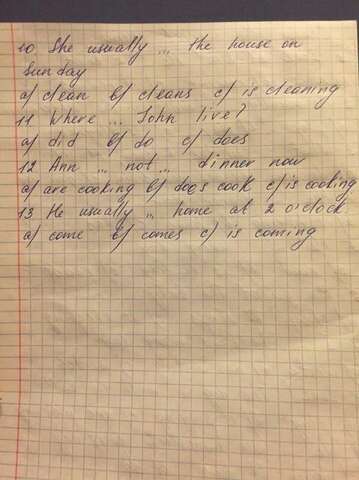 10 She usually ... the house on
Sunday
a) clean b) cleans c) is cleaning
11 Where ... John live?
a) did b) do c) does
12 Ann ... not ... dinner now
a) are cooking b) does cook c) is cooking
13 He usually ... home at 2 o'clock
a) come b) comes c) is coming